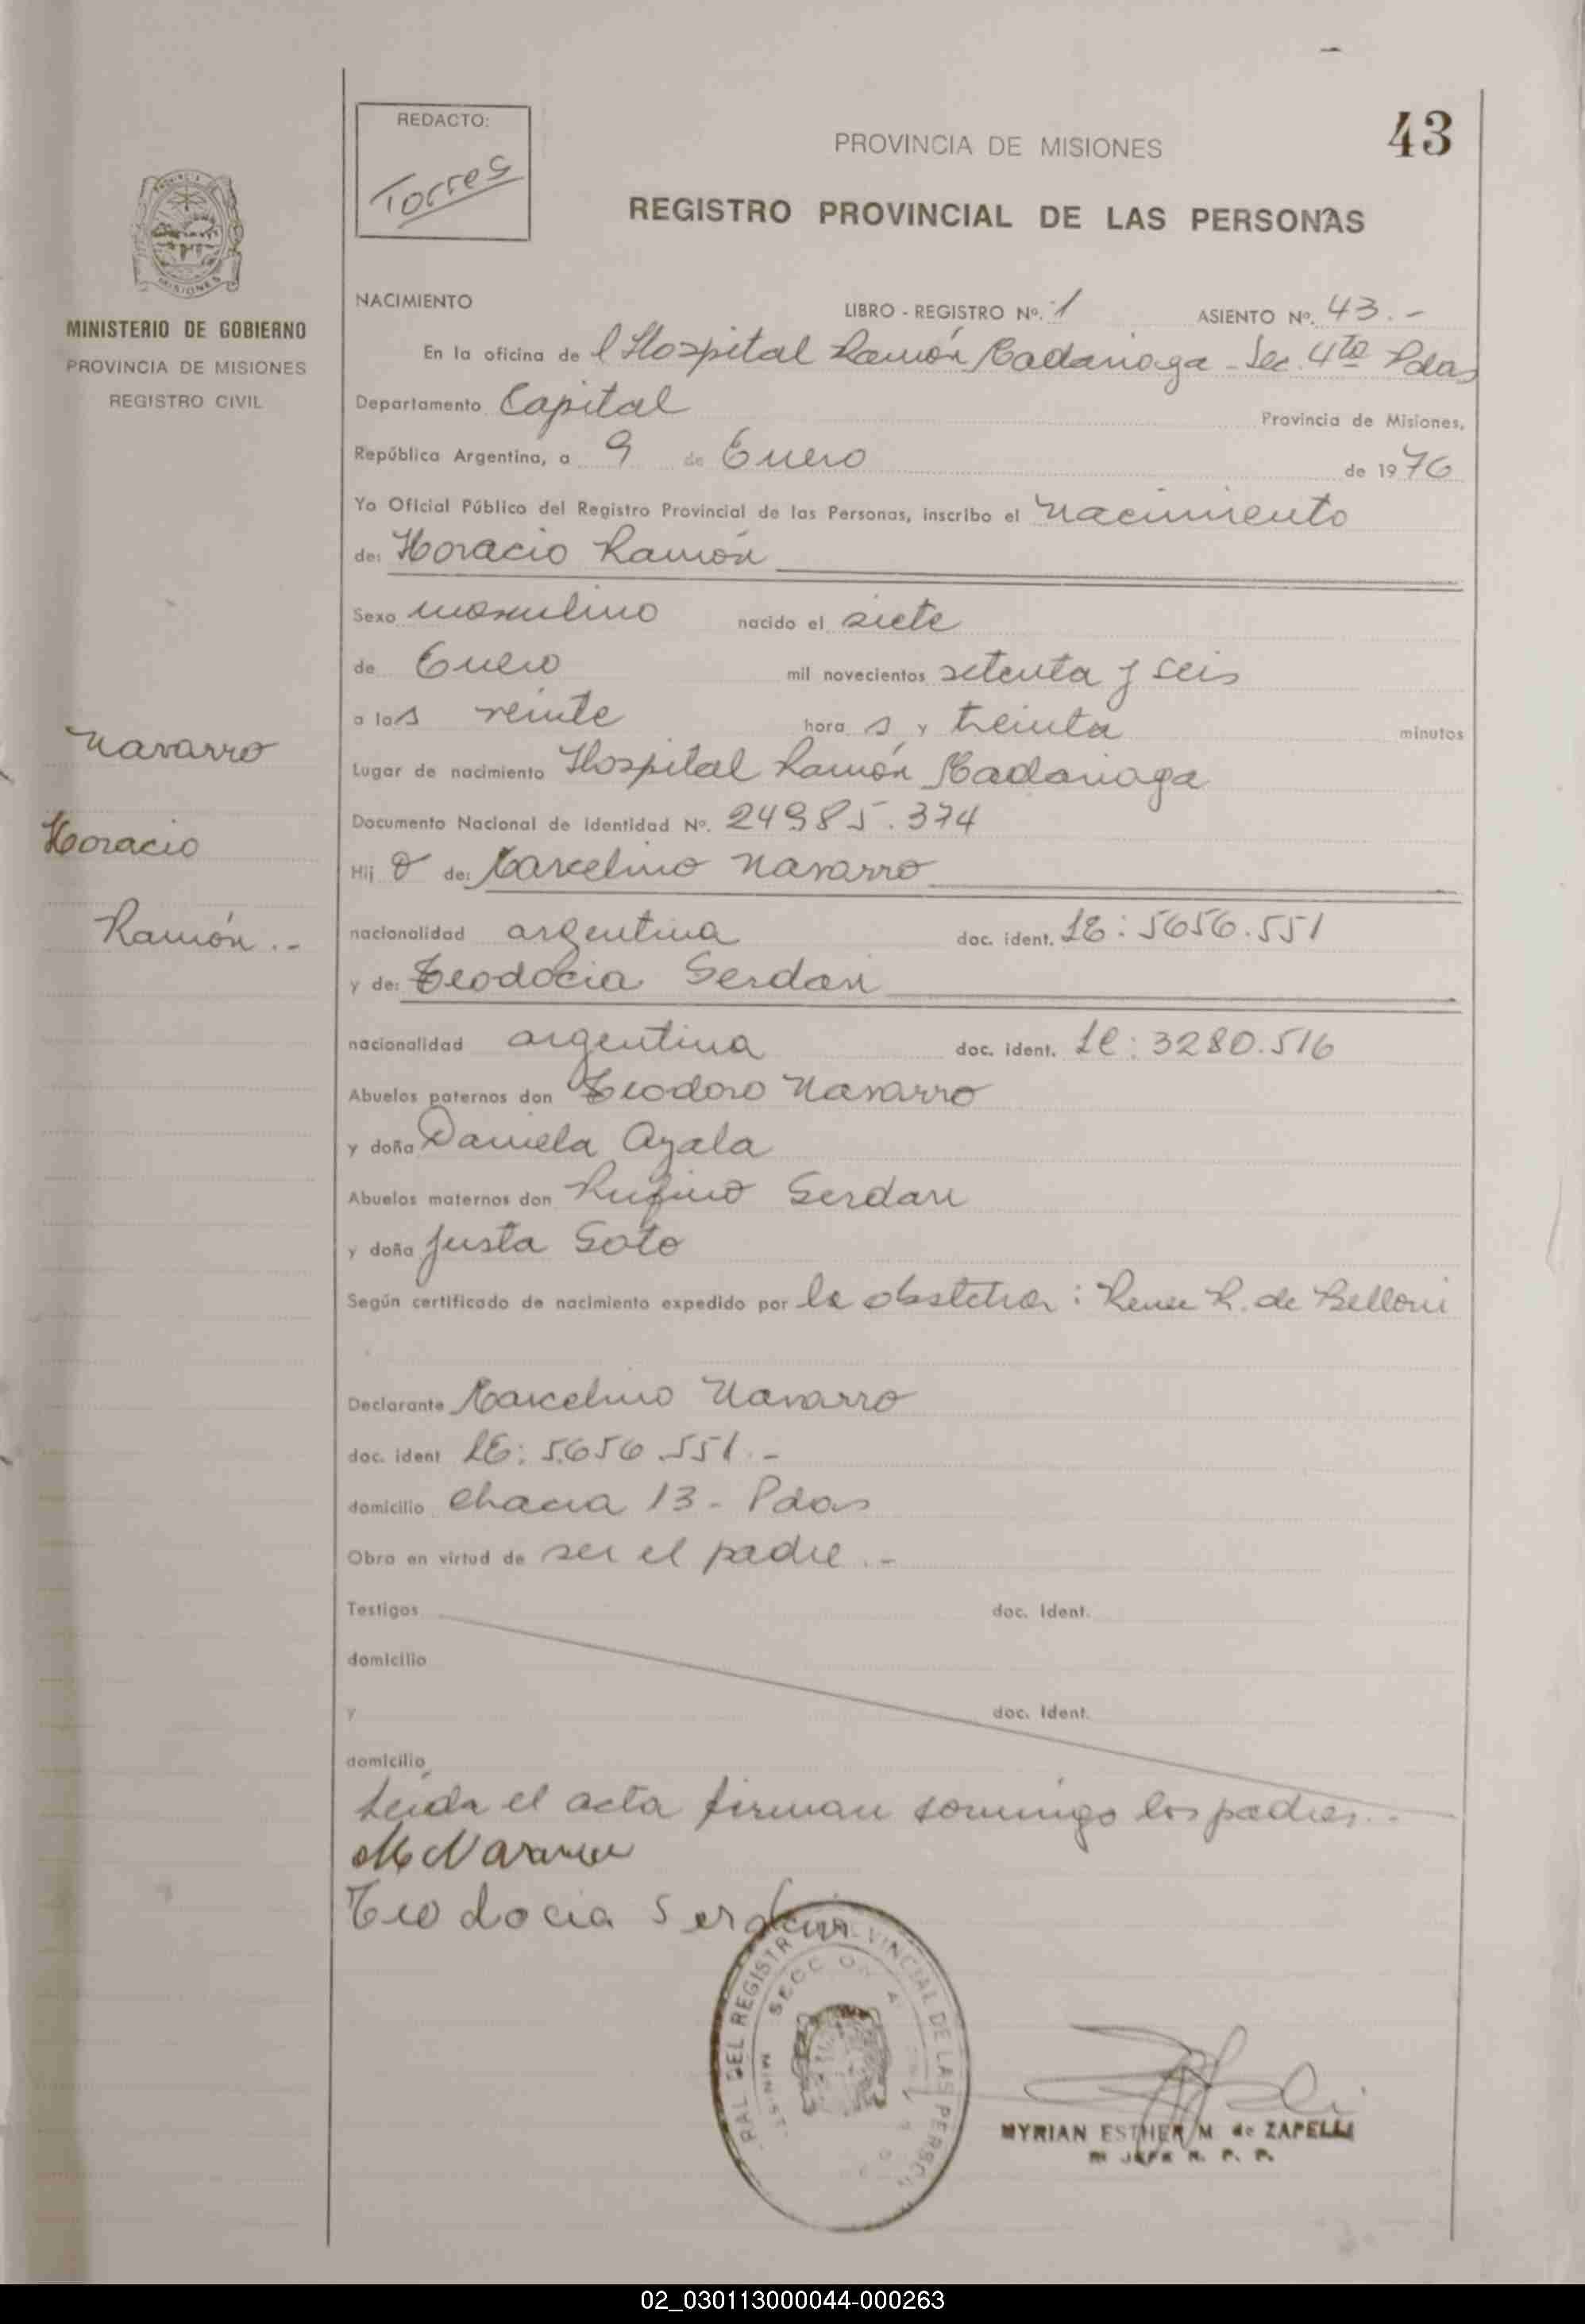 REDACTO:
Torres
43
PROVINCIA DE MISIONES
REGISTRO PROVINCIAL DE LAS PERSONAS
MINISTERIO DE GOBIERNO
PROVINCIA DE MISIONES
REGISTRO CIVIL
NACIMIENTO LIBRO - REGISTRO Nº. 1 ASIENTO Nº. 43.-
En la oficina de l Hospital Ramón Madariaga - Sec. 4ta Pdas
Departamento Capital Provincia de Misiones,
República Argentina, a 9 de Enero de 1976
Yo Oficial Público del Registro Provincial de las Personas, inscribo el nacimiento
de: Horacio Ramón
Sexo masculino nacido el siete
de Enero mil novecientos setenta y seis
a las veinte hora s, y treinta minutos
Lugar de nacimiento Hospital Ramón Madariaga
Documento Nacional de Identidad Nº. 24985.374
Hij o de: Marcelino Navarro
nacionalidad argentina doc. ident. LE: 5656.551
y de: Teodocia Serdan
nacionalidad argentina doc. ident. LC: 3280.516
Abuelos paternos don Teodoro Navarro
y doña Daniela Ayala
Abuelos maternos don Rufino Serdan
y doña Justa Soto
Según certificado de nacimiento expedido por la obstetra: Renee R. de Belloni
Navarro
Horacio
Ramón.-
Declarante Marcelino Navarro
doc. ident LE: 5.656.551.-
domicilio chacra 13 - Pdas
Obra en virtud de ser el padre.-
Testigos doc. Ident.
domicilio
y doc. Ident.
domicilio
Leida el acta firman conmigo los padres.-
M Navarro
Teodocia Serdan
PAL DEL REGISTR VINCIAL DE LAS PERSON
SECC
MYRIAN ESTHER M. de ZAPELLI
JEFE R. P. P.
02_030113000044-000263